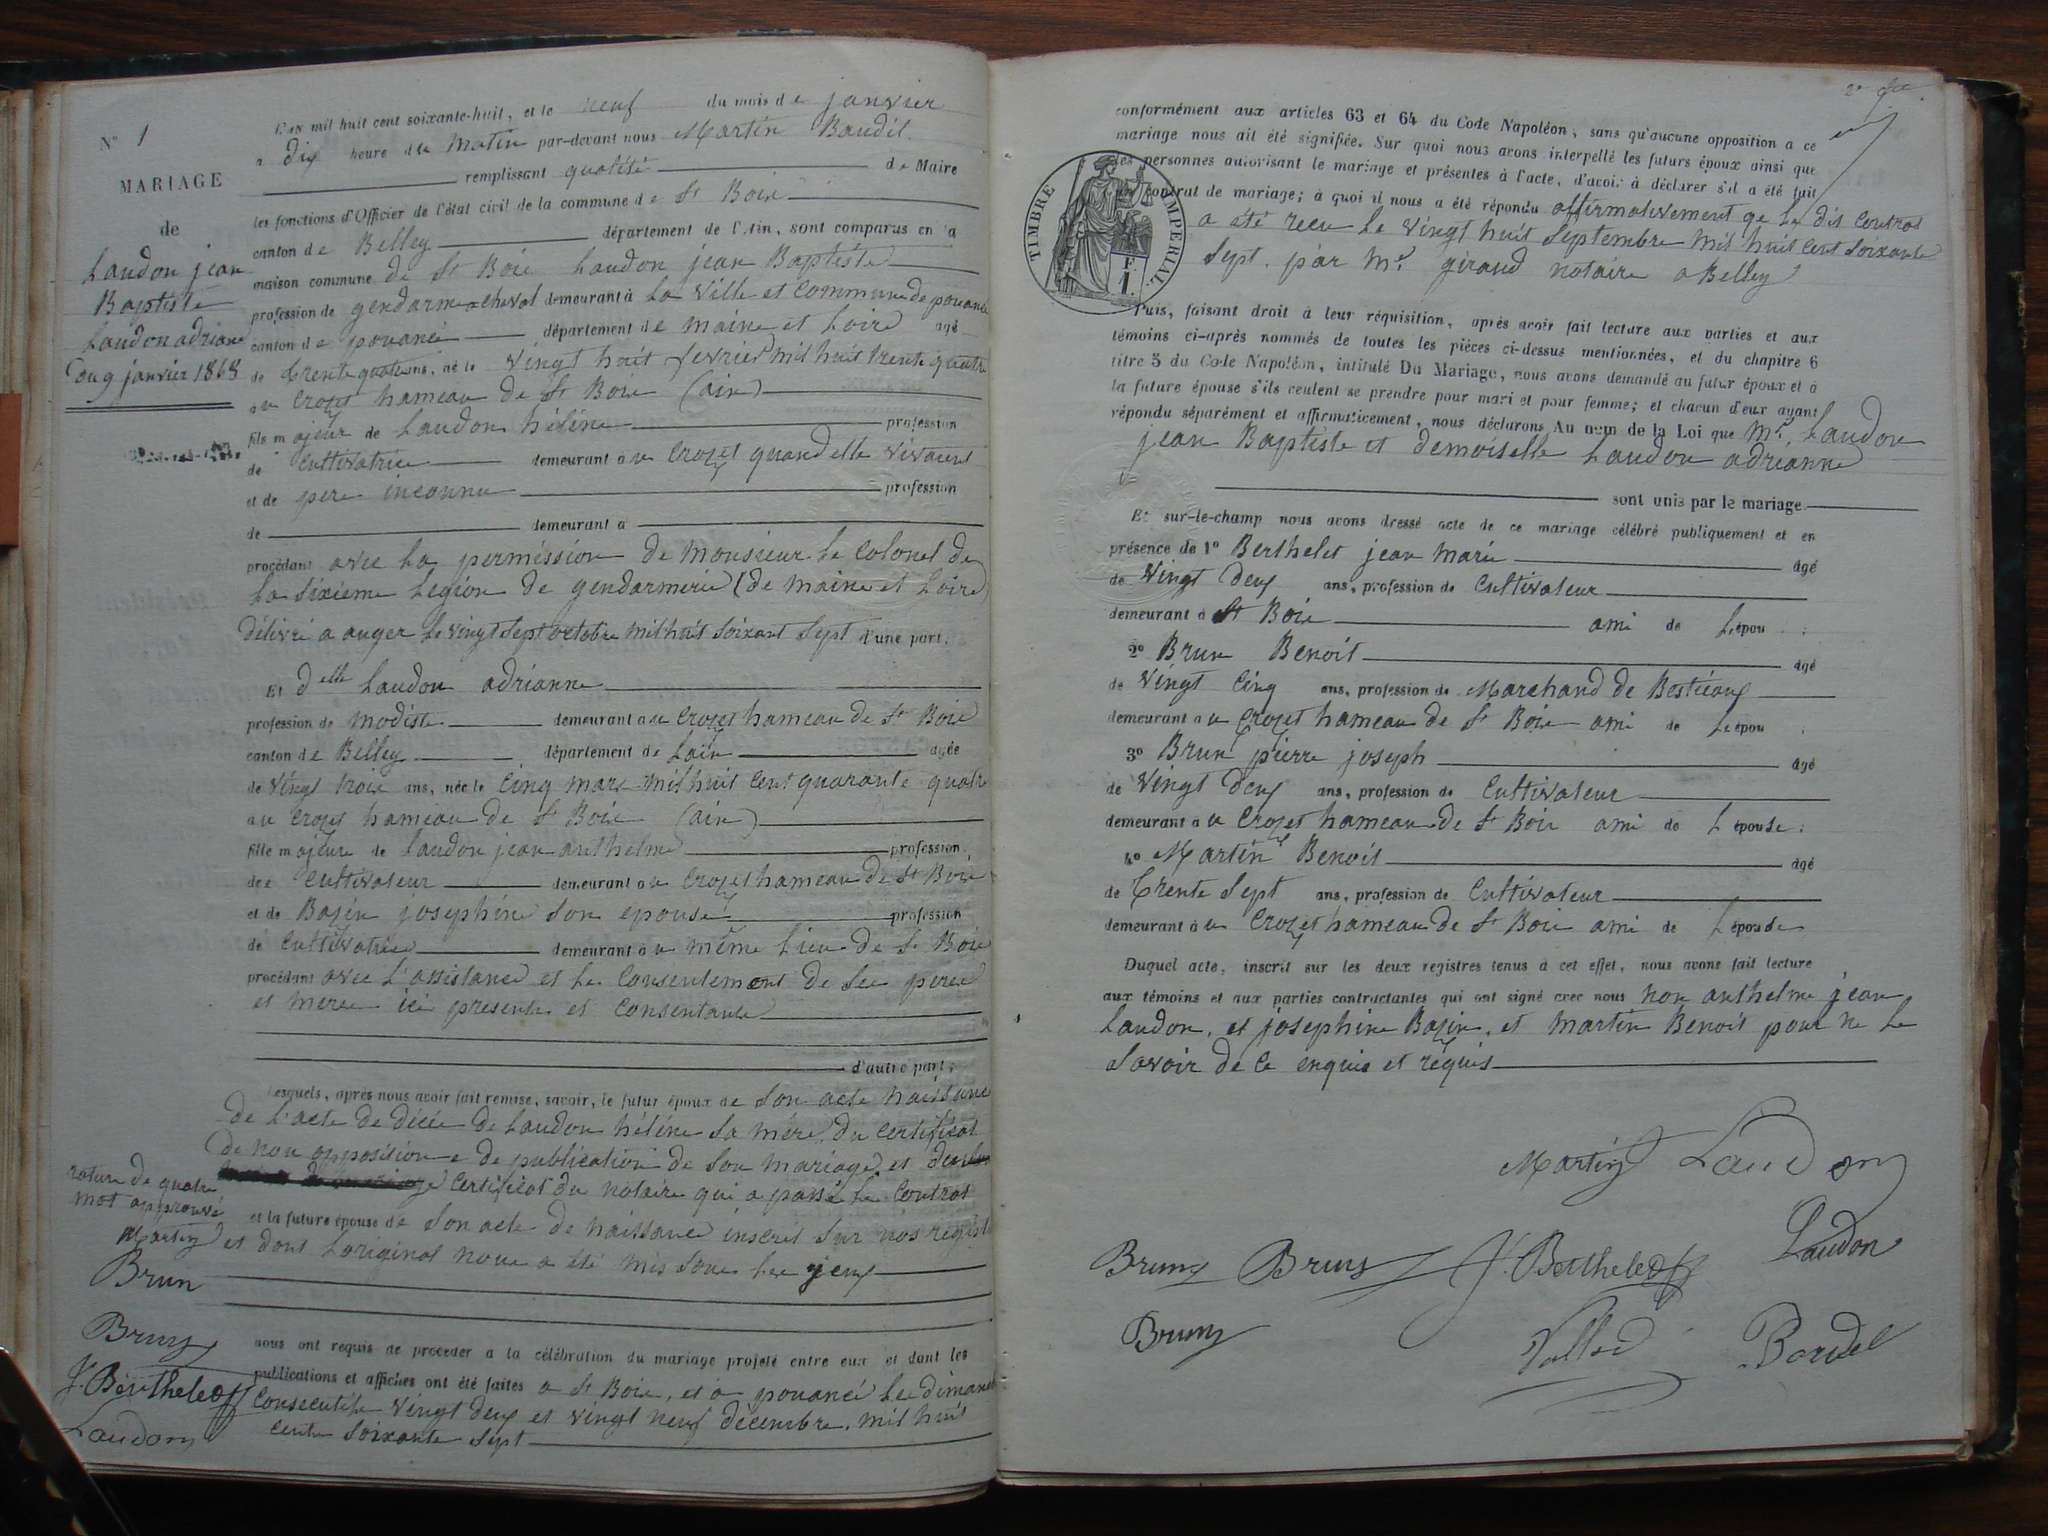 N° 1
MARIAGE
de
Laudon jean
Baptiste
Laudon adrianne
Du 9 janvier 1868
L'an mil huit cent soixante-huit, et le neuf du mois de janvier
à dix heure du matin par-devant nous Martin Baudil
remplissant qualité de Maire
les fonctions d'Officier de l'état civil de la commune de St Boie
canton de Belley département de l'Ain, sont comparus en la
maison commune de St Boie Laudon jean Baptiste
profession de gendarme a cheval demeurant à La Ville et Commune de pouancé
canton de pouancé département de maine et Loire agé
de trente quatre ans, né le vingt huit fevrier mil huit trente quatre
au Crozet hameau de St Boie (ain)
fils majeur de Laudon hélène profession
de cultivatrice demeurant au Crozet quand elle vivaient
et de pere inconnu profession
de demeurant à
procédant avec La permission de Monsieur le Colonel de
La Sixieme Legion de gendarmerie (de maine et Loire)
délivré a anger le vingt sept octobre mil huit soixant sept d'une part.
Et delle Laudon adrianne
profession de modiste demeurant au Crozet hameau de St Boie
canton de Belley département de Lain agée
de vingt trois ans, née le cinq mars mil huit cent quarante quatre
au Crozet hameau de St Boie (ain)
fille majeure de Laudon jean anthelme profession
de cultivateur demeurant au Crozet hameau de St Boie
et de Bazin josephine son epouse profession
de cultivatrice demeurant au même Lieu de St Boie
procédant avec L'assistance et Le Consentement de See peree
et meree ici presente et Consentante
d'autre part,
Lesquels, après nous avoir fait remise, savoir, le futur époux de son acte naissance
de L'acte de décée de Laudon hélène sa mère, du certificat
de non opposition e de publication de son mariage. et du
certificat du notaire qui a passé Le Contrat
et la future épouse de son acte de naissance inscrit sur nos registre
et dont Loriginal noue a été mis soue Lee yeux
rature de quatre
mot approuvé
Martin
Brun
Brun
J. Berthelet
Laudon
nous ont requis de procéder à la célébration du mariage projeté entre eux et dont les
publications et affiches ont été faites a St Boie, et a pouancé Lee dimanche
Consecutife vingt deux et vingt neuf décembre, mil huit
cente soixante sept
conformément aux articles 63 et 64 du Code Napoléon, sans qu'aucune opposition a ce
mariage nous ait été signifiée. Sur quoi nous avons interpellé les futurs époux ainsi que
les personnes autorisant le mariage et présentes à l'acte, d'avoir à déclarer s'il a été fait
un contrat de mariage; à quoi il nous a été répondu affirmativement qe Le dit Contrat
a été recu Le vingt huit Septembre mil huit Cent Soixante
Sept. par Me giraud notaire a Belley
TIMBRE IMPERIAL
F. 1.
Puis, faisant droit à leur réquisition, après avoir fait lecture aux parties et aux
témoins ci-après nommés de toutes les pièces ci-dessus mentionnées, et du chapitre 6
titre 5 du Code Napoléon, intitulé Du Mariage, nous avons demandé au futur époux et à
la future épouse s'ils veulent se prendre pour mari et pour femme; et chacun d'eux ayant
répondu séparément et affirmativement, nous déclarons Au nom de la Loi que Mr. Laudon
jean Baptiste et demoiselle Laudon adrianne
sont unis par le mariage.
Et sur-le-champ nous avons dressé acte de ce mariage célébré publiquement et en
présence de 1° Berthelet jean marie agé
de vingt deux ans, profession de cultivateur
demeurant à St Boie ami de L'épou
2° Brun Benoit agé
de vingt cinq ans, profession de Marchand de Bestieaux
demeurant au Crozet hameau de St Boie ami de L'épou
3° Brun pierre joseph agé
de vingt deux ans, profession de cultivateur
demeurant au Crozet hameau de St Boie ami de L'épouse
4° Martin Benoit agé
de trente Sept ans, profession de cultivateur
demeurant au Crozet hameau de St Boie ami de L'épouse
Duquel acte, inscrit sur les deux registres tenus à cet effet, nous avons fait lecture
aux témoins et aux parties contractantes qui ont signé avec nous non anthelme jean
Laudon, et josephine Bazin, et Martin Benoit pour ne Le
Savoir de Ce enquie et requis
Martin Laudon
Laudon
Brun Brun J. Berthelet
Brun Bordel